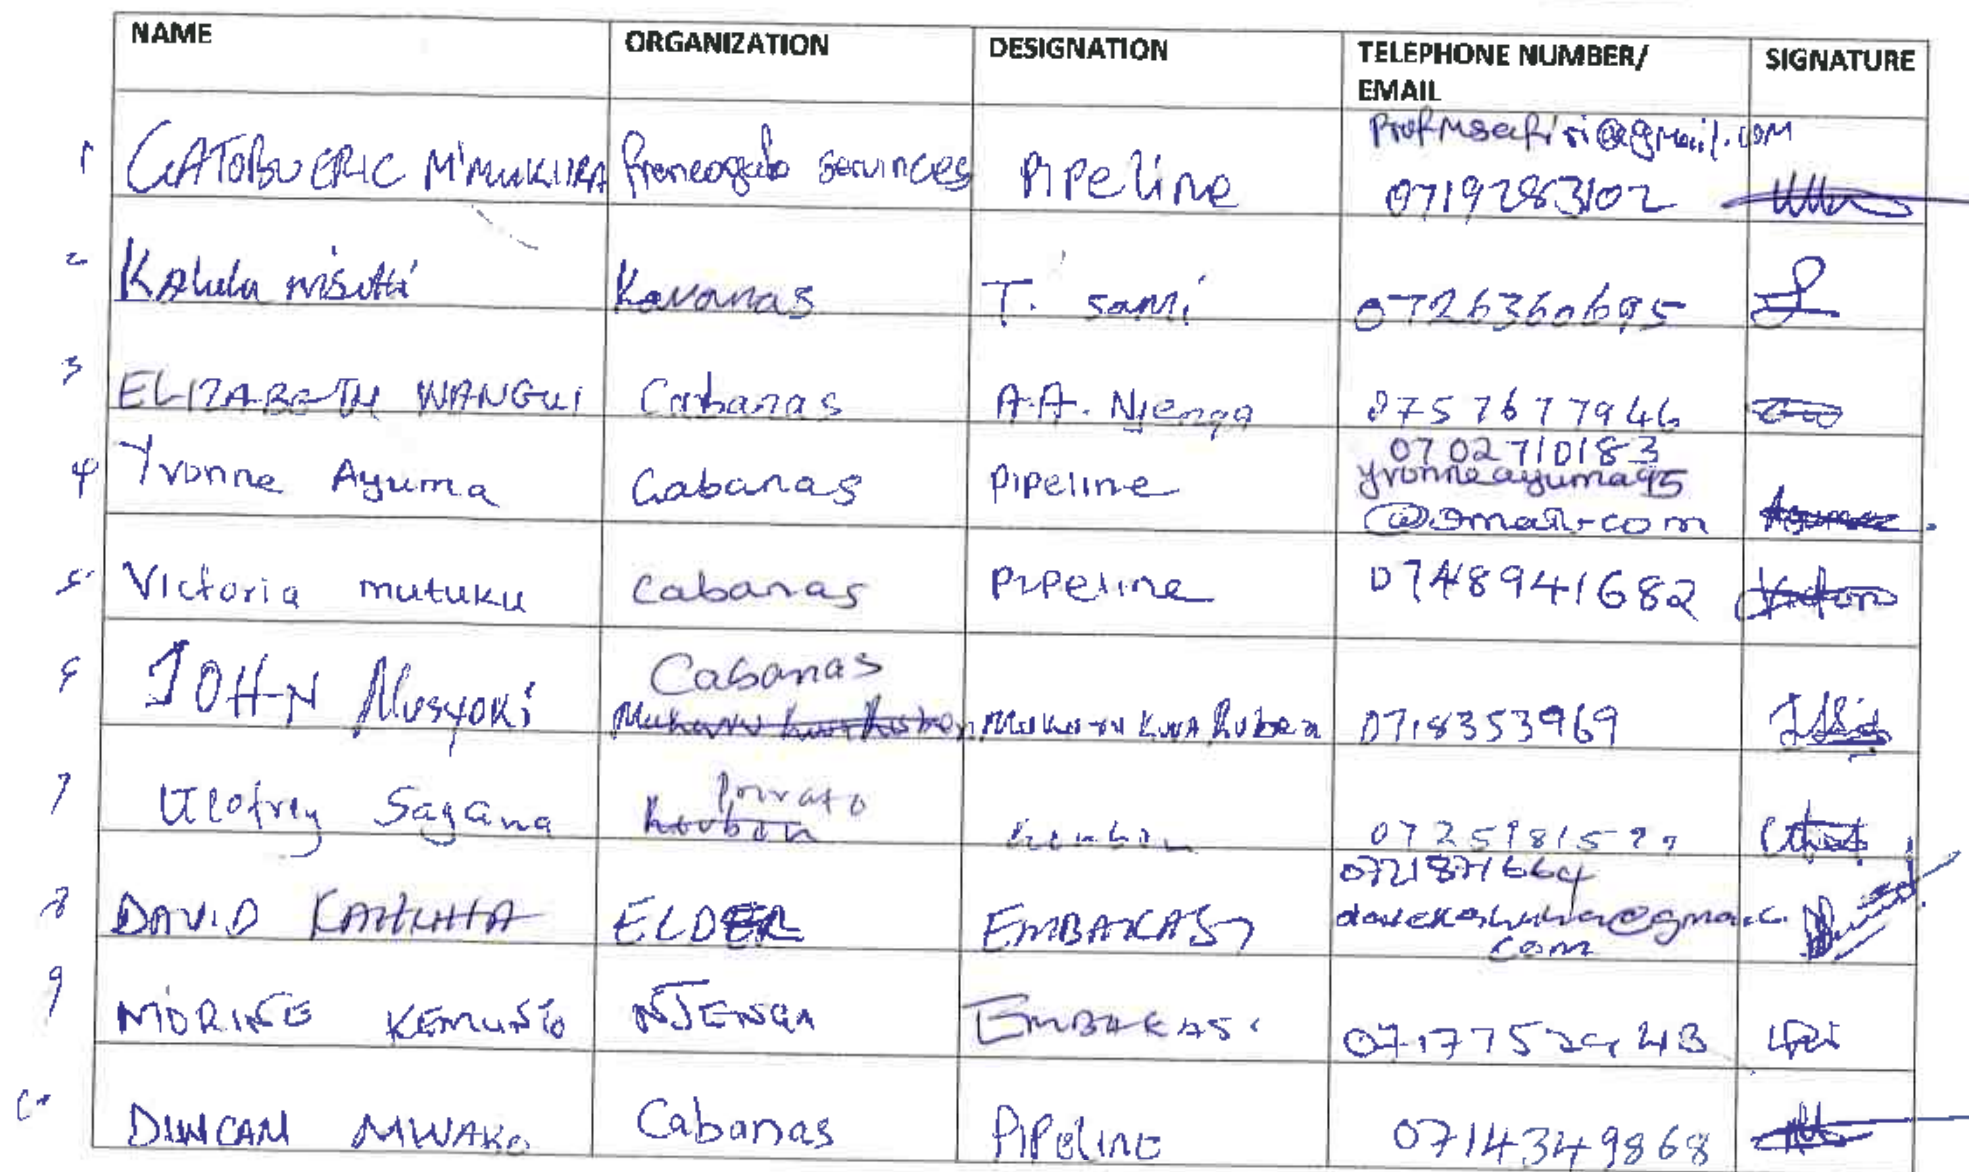 NAME ORGANIZATION DESIGNATION TELEPHONE NUMBER/ EMAIL SIGNATURE
1 GATOBU ERIC M'MUKIIRA services Pipeline Profmsafiri@gmail.com
0719283102
2 Kalula Kavanas T. sami 0726360695
3 ELIZABETH WANGUI Cabanas A.A. Njenga 0757677946
4 Yvonne Ayuma Cabanas pipeline 0702710183
yvonneayuma95
@gmail.com
5 Victoria mutuku cabanas pipeline 0748941682
6 JOHN Musyoki Cabanas
MUKURU KWA Ruben 0718353969
7 Sagana Private
8 DAVID ELDER EMBAKASI 0721871664
com
9 MORINE KEMUNTO NJENGA EMBAKASI
10 DUNCAN MWAKO Cabanas PIPELINE 0714349868